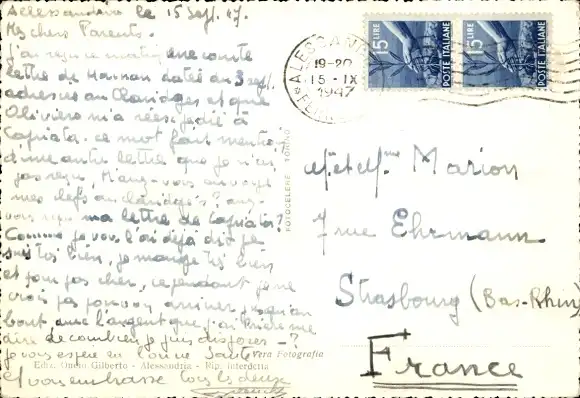 Alessandria le 15 Sept. 47.
Mes chers Parents.
J'ai reçu ce matin une courte
lettre de Maman datée du 3 sept.
adressée au Claridges et que
Oliviero m'a réexpédiée à
Capriata. ce mot fait mention
d'une autre lettre que je n'ai
pas reçue,
mes clefs au claridge's?
vous reçu ma lettre de Capriata?
Comme je vous l'ai déjà dit je
suis très bien, je mange très bien
et pour pas cher, cependant je ne
crois pas pouvoir arriver jusqu'au
bout avec l'argent que j'ai
dire de combien je puis disposer-?
je vous espère en bonne Santé
et vous embrasse tous les deux
Vera Fotografia
Ediz. Omini Gilberto - Alessandria - Rip. interdetta
FOTOCELERE TORINO
ALESSAN
19-20
15-IX
1947
15 LIRE
POSTE ITALIANE
15 LIRE
POSTE ITALIANE
M. et Mme Marion
7 rue Ehrmann
Strasbourg (Bas-Rhin)
France